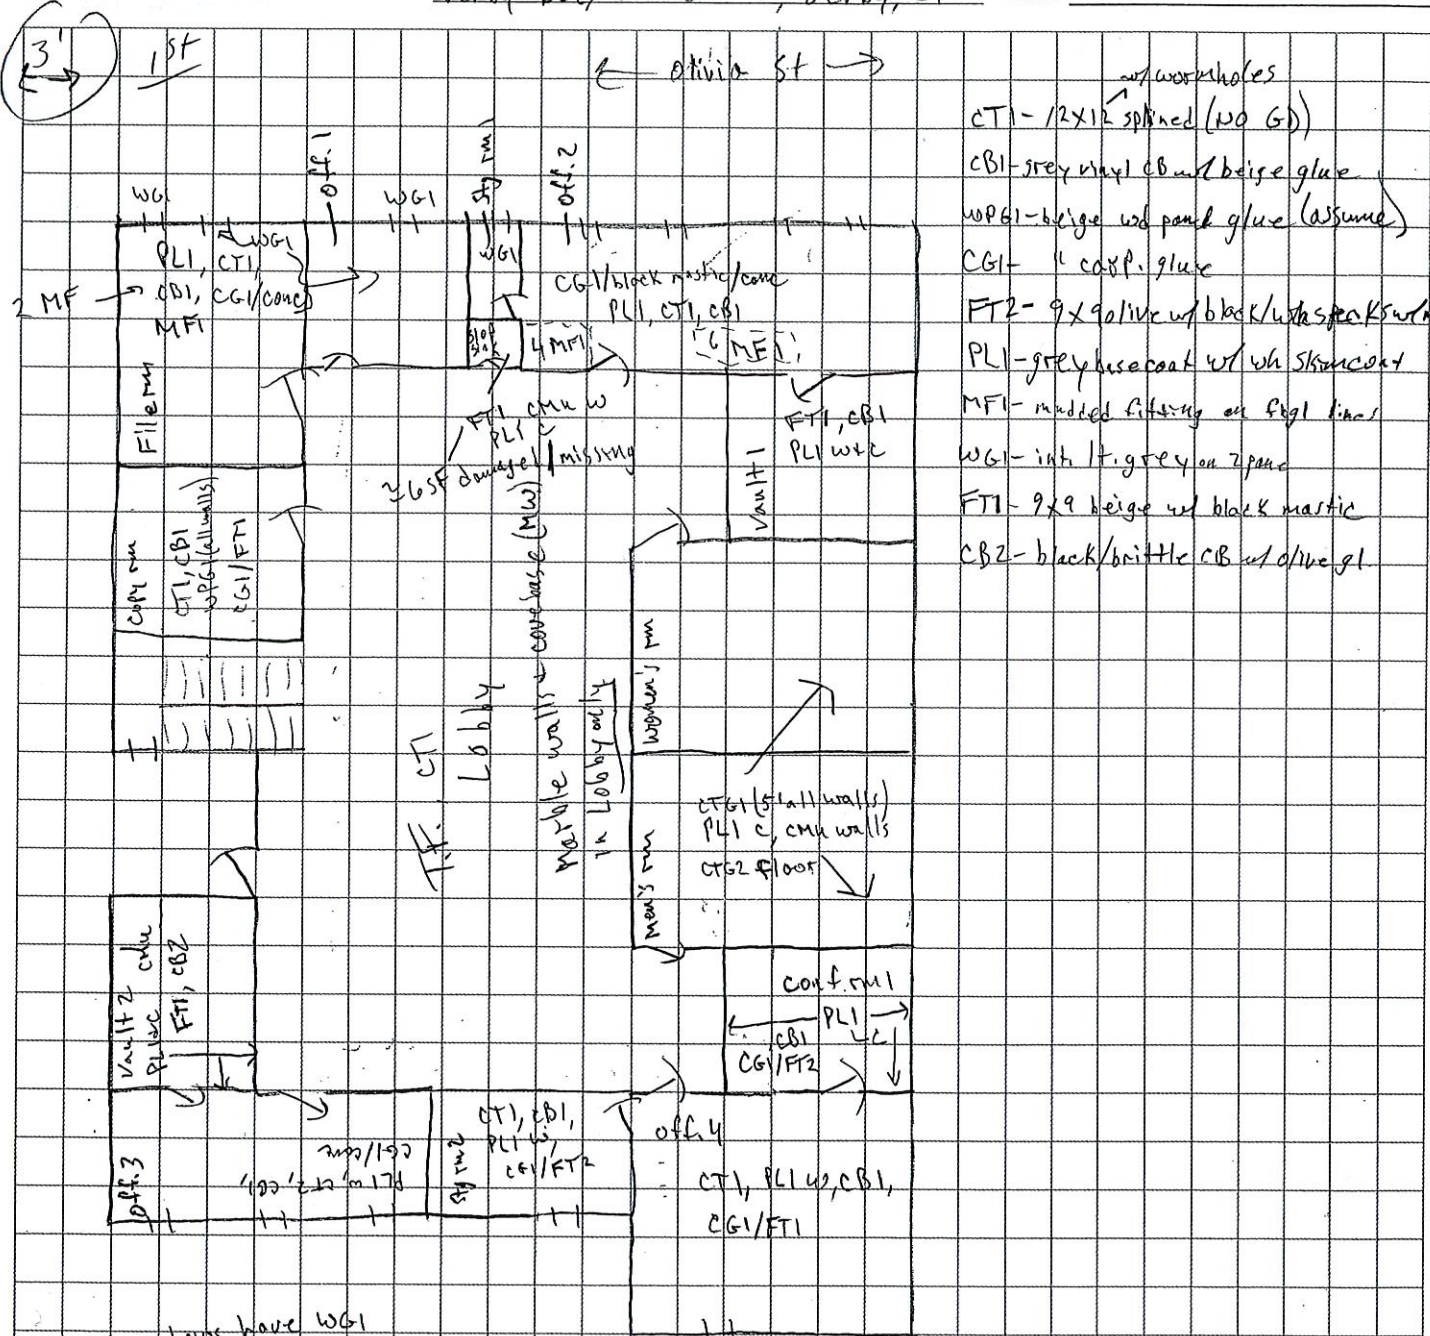 3'
1st
← Olivia St →
w/ wormholes
CT1- 12x12 splined (NO GD)
CB1-grey vinyl CB w/ beige glue
WPG1-beige wd panel glue (assume)
CG1- " carp. glue
FT2- 9x9 olive w/ black/wh specks w/
PL1-grey basecoat w/ wh skimcoat
MF1- mudded fitting on fbgl lines
WG1- int. lt. grey on 2 pane
FT1- 9x9 beige w/ black mastic
CB2- black/brittle CB w/ olive gl
WG1
off.1
WG1
Stg rm1
off.2
WG1
PL1, CT1,
CB1, CG1/conc
MF1
2 MF
File rm
WG1
slop sink
CG1/black mastic/conc
PL1, CT1, CB1
4 MF1
6 MF1
FT1, CMU W
PL1 C
≈6 SF damaged/missing
FT1, CB1
PL1 W+C
Vault 1
Copy rm
CT1, CB1
WPG1 (all walls)
CG1/FT1
T.F. CT1
Lobby
Marble walls + covebase (MW)
in Lobby only
Women's rm
Men's rm
CTG1 (5' all walls)
PL1 C, CMU walls
CTG2 floor
Vault 2 cmu
FT1, CB2
conf. rm 1
PL1
CB1
CG1/FT2
off.3
PL1 w, CT2, CB1,
CG1/conc
Stg rm2
CT1, CB1,
PL1 W,
CG1/FT2
off.4
CT1, PL1 W, CB1,
CG1/FT1
have WG1